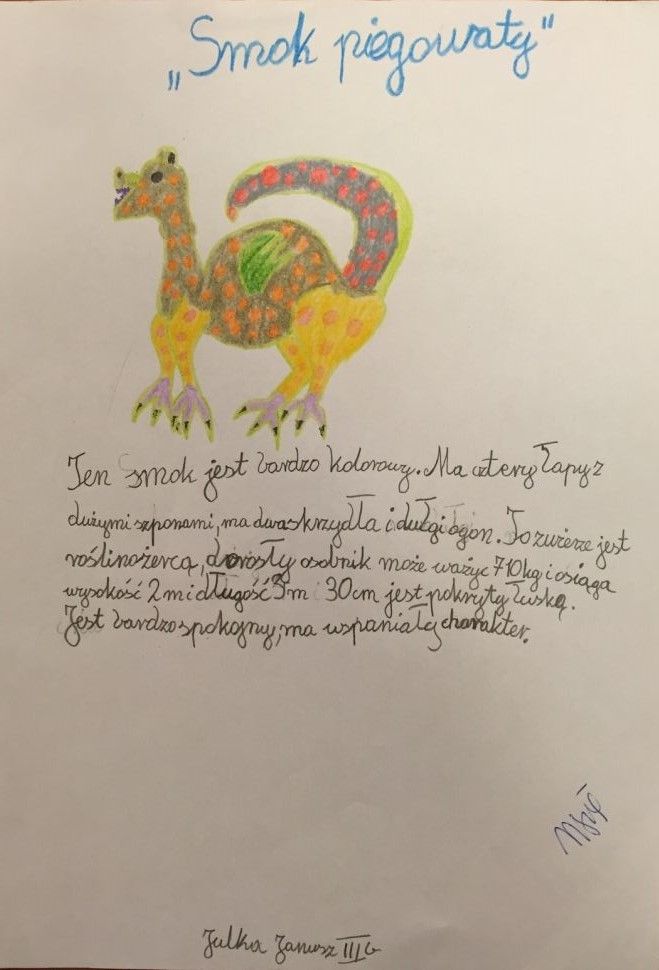 „Smok piegowaty”
Ten smok jest bardzo kolorowy. Ma cztery łapy z
dużymi szponami, ma dwa skrzydła i długi ogon. To zwierze jest
roślinożercą, dorosły osobnik może ważyc 710kg i osiąga
wysokość 2m i długość 3m i 30cm jest pokryty łuską.
Jest bardzo spokojny, ma wspaniały charakter.
Julka Janusz III